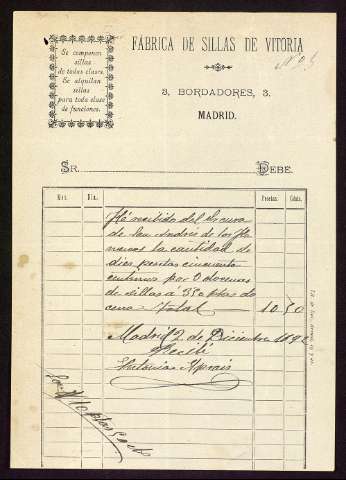 Se componen
sillas
de todas clases.
Se alquilan
sillas
para toda clase
de funciones.
FÁBRICA DE SILLAS DE VITORIA
Nº 25
3, BORDADORES, 3.
MADRID.
SR. DEBE:
Mes. Día. Pesetas. Cénts.
He recibido del Sr cura
de San Andrés de los Fla
mencos la cantidad de
diez pesetas cincuenta
centimos por docenas
de sillas á 3'50 ptas do
cena Total 10 50
Madrid 2 de Diciembre 1892
Recibí
Son 10 ptas 50 cts